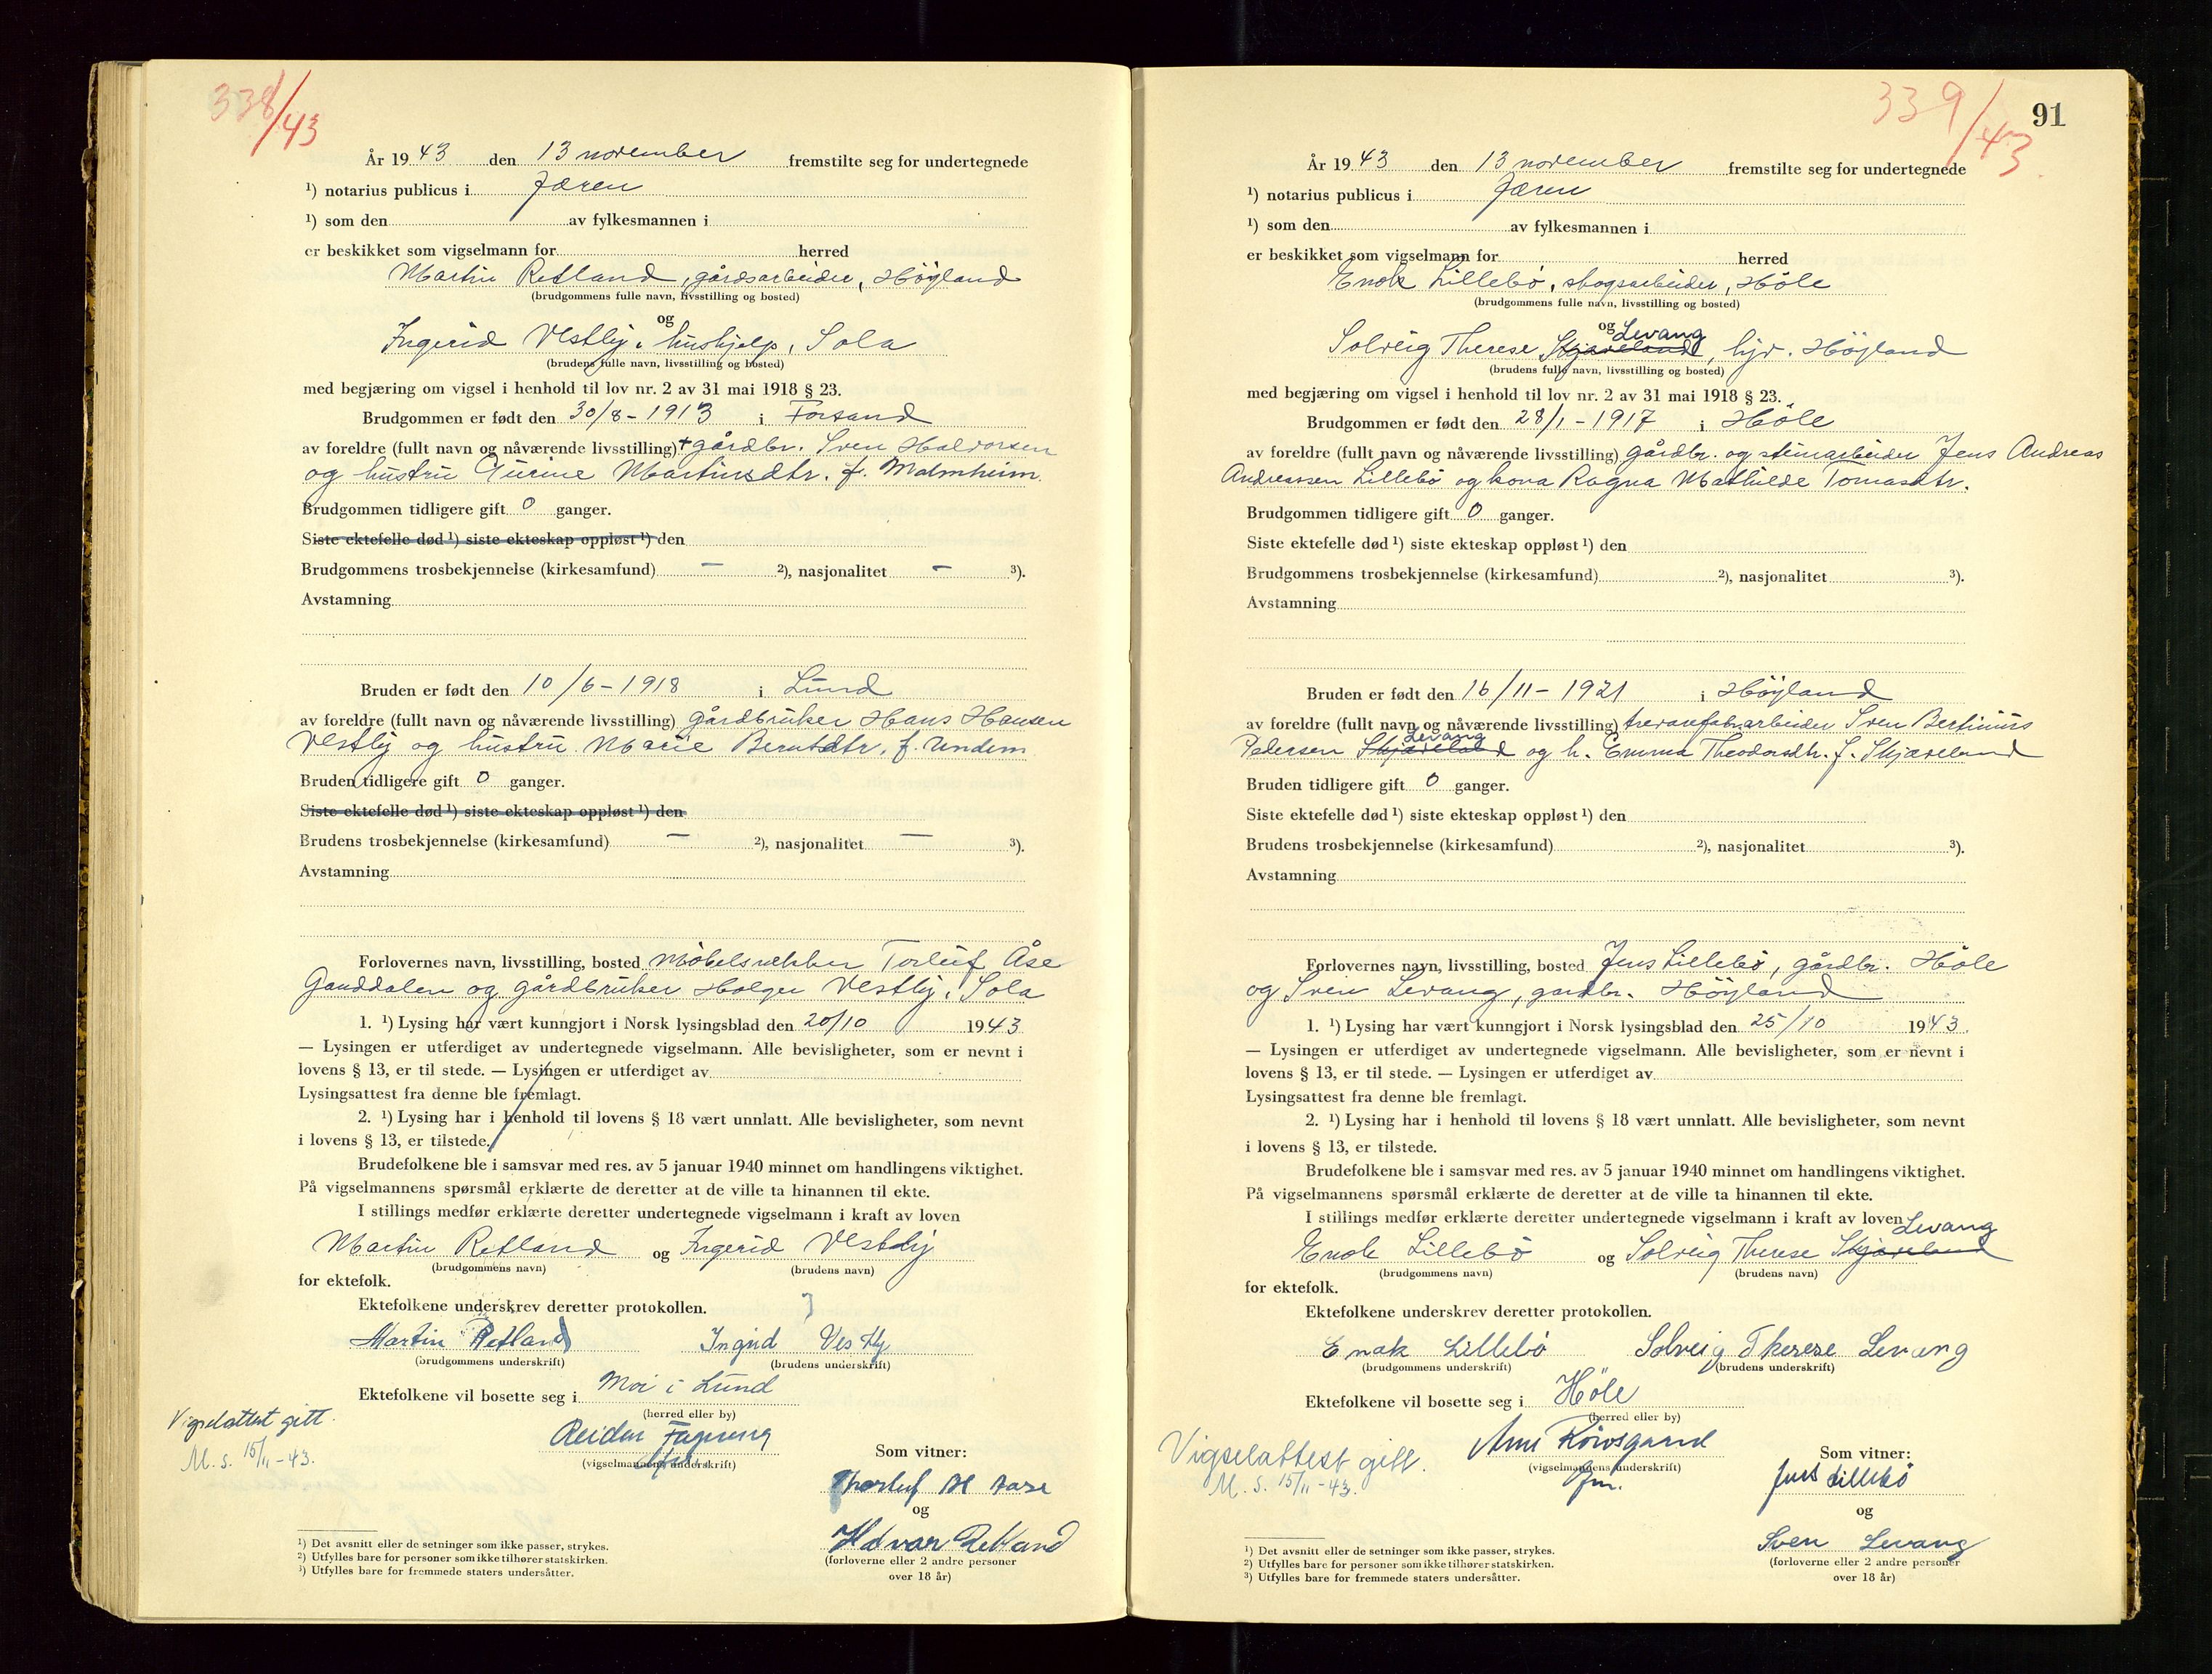 338/43
År 19 43 den 13 november fremstilte seg for undertegnede
¹) notarius publicus i Jæren
¹) som den av fylkesmannen i
er beskikket som vigselmann for herred
Martin Retland, gårdsarbeider, Høyland
(brudgommens fulle navn, livsstilling og bosted)
og
Ingerid Vestly, hushjelp, Sola
(brudens fulle navn, livsstilling og bosted)
med begjæring om vigsel i henhold til lov nr. 2 av 31 mai 1918 § 23.
Brudgommen er født den 30/8 - 1913 i Forsand
av foreldre (fullt navn og nåværende livsstilling) + gårdbr. Sven Haldorsen
og hustru Gurine Martinsdtr. f. Malmheim.
Brudgommen tidligere gift 0 ganger.
Siste ektefelle død ¹) siste ekteskap oppløst ¹) den
Brudgommens trosbekjennelse (kirkesamfund) — ²), nasjonalitet — ³).
Avstamning
Bruden er født den 10/6 - 1918 i Lund
av foreldre (fullt navn og nåværende livsstilling) gårdbruker Hans Hansen
Vestly og hustru Marie Berntdtr. f. Undem
Bruden tidligere gift 0 ganger.
Siste ektefelle død ¹) siste ekteskap oppløst ¹) den
Brudens trosbekjennelse (kirkesamfund) — ²), nasjonalitet — ³).
Avstamning
Forlovernes navn, livsstilling, bosted møbelsnekker Torleif Åse
Ganddalen og gårdbruker Holger Vestly, Sola
1. ¹) Lysing har vært kunngjort i Norsk lysingsblad den 20/10 1943
— Lysingen er utferdiget av undertegnede vigselmann. Alle bevisligheter, som er nevnt i
lovens § 13, er til stede. — Lysingen er utferdiget av
Lysingsattest fra denne ble fremlagt.
2. ¹) Lysing har i henhold til lovens § 18 vært unnlatt. Alle bevisligheter, som nevnt
i lovens § 13, er tilstede.
Brudefolkene ble i samsvar med res. av 5 januar 1940 minnet om handlingens viktighet.
På vigselmannens spørsmål erklærte de deretter at de ville ta hinannen til ekte.
I stillings medfør erklærte deretter undertegnede vigselmann i kraft av loven
Martin Retland og Ingerid Vestly
(brudgommens navn) (brudens navn)
for ektefolk.
Ektefolkene underskrev deretter protokollen.
Martin Retland Ingrid Vestly
(brudgommens underskrift) (brudens underskrift)
Ektefolkene vil bosette seg i Moi i Lund
(herred eller by)
Vigselattest gitt.
M. S. 15/11-43.
Reidar
(vigselmannens underskrift)
Som vitner:
Thorleif Aase
og
Halvar Retland
(forloverne eller 2 andre personer
over 18 år)
¹) Det avsnitt eller de setninger som ikke passer, strykes.
²) Utfylles bare for personer som ikke tilhører statskirken.
³) Utfylles bare for fremmede staters undersåtter.
339/43
91
År 19 43 den 13 november fremstilte seg for undertegnede
¹) notarius publicus i Jæren
¹) som den av fylkesmannen i
er beskikket som vigselmann for herred
Enok Lillebø, skogsarbeider, Høle
(brudgommens fulle navn, livsstilling og bosted)
og Levang
Solveig Therese Skjæveland, hjv. Høyland
(brudens fulle navn, livsstilling og bosted)
med begjæring om vigsel i henhold til lov nr. 2 av 31 mai 1918 § 23.
Brudgommen er født den 28/1 - 1917 i Høle
av foreldre (fullt navn og nåværende livsstilling) gårdbr. og steinarbeider Jens Andreas
Andreassen Lillebø og kona Ragna Mathilde Tomasdtr.
Brudgommen tidligere gift 0 ganger.
Siste ektefelle død ¹) siste ekteskap oppløst ¹) den
Brudgommens trosbekjennelse (kirkesamfund) ²), nasjonalitet ³).
Avstamning
Bruden er født den 16/11 - 1921 i Høyland
av foreldre (fullt navn og nåværende livsstilling) trevarefabr.arbeider Sven Bertinius
Levang
Pedersen Skjæveland og h. Emma Theodorsdtr. f. Skjæveland
Bruden tidligere gift 0 ganger.
Siste ektefelle død ¹) siste ekteskap oppløst ¹) den
Brudens trosbekjennelse (kirkesamfund) ²), nasjonalitet ³).
Avstamning
Forlovernes navn, livsstilling, bosted Jens Lillebø, gårdbr. Høle
og Sven Levang, gardbr. Høyland
1. ¹) Lysing har vært kunngjort i Norsk lysingsblad den 25/10 1943.
— Lysingen er utferdiget av undertegnede vigselmann. Alle bevisligheter, som er nevnt i
lovens § 13, er til stede. — Lysingen er utferdiget av
Lysingsattest fra denne ble fremlagt.
2. ¹) Lysing har i henhold til lovens § 18 vært unnlatt. Alle bevisligheter, som nevnt
i lovens § 13, er tilstede.
Brudefolkene ble i samsvar med res. av 5 januar 1940 minnet om handlingens viktighet.
På vigselmannens spørsmål erklærte de deretter at de ville ta hinannen til ekte.
I stillings medfør erklærte deretter undertegnede vigselmann i kraft av loven
Levang
Enok Lillebø og Solveig Therese Skjæveland
(brudgommens navn) (brudens navn)
for ektefolk.
Ektefolkene underskrev deretter protokollen.
Enok Lillebø Solveig Therese Levang
(brudgommens underskrift) (brudens underskrift)
Ektefolkene vil bosette seg i Høle
(herred eller by)
Vigselattest gitt.
M. S. 15/11-43.
Arne
(vigselmannens underskrift)
fm.
Som vitner:
Jens Lillebø
og
Sven Levang
(forloverne eller 2 andre personer
over 18 år)
¹) Det avsnitt eller de setninger som ikke passer, strykes.
²) Utfylles bare for personer som ikke tilhører statskirken.
³) Utfylles bare for fremmede staters undersåtter.